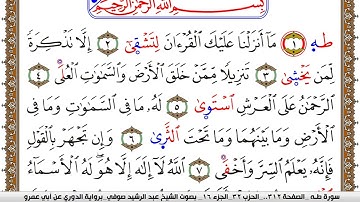 بِسْمِ اللَّهِ الرَّحْمَٰنِ الرَّحِيمِ
طه ١ مَا أَنزَلْنَا عَلَيْكَ الْقُرْءَانَ لِتَشْقَىٰ ٢ إِلَّا تَذْكِرَةً
لِّمَن يَخْشَىٰ ٣ تَنزِيلًا مِّمَّنْ خَلَقَ الْأَرْضَ وَالسَّمَٰوَٰتِ الْعُلَى ٤
الرَّحْمَٰنُ عَلَى الْعَرْشِ اسْتَوَىٰ ٥ لَهُ مَا فِي السَّمَٰوَٰتِ وَمَا فِي
الْأَرْضِ وَمَا بَيْنَهُمَا وَمَا تَحْتَ الثَّرَىٰ ٦ وَإِن تَجْهَرْ بِالْقَوْلِ
فَإِنَّهُ يَعْلَمُ السِّرَّ وَأَخْفَى ٧ اللَّهُ لَا إِلَٰهَ إِلَّا هُوَ لَهُ الْأَسْمَاءُ
سورة طـه _الصفحة ٣١٢_.. الحزب ٣٢_ الجزء ١٦_ بصوت الشيخ عبد الرشيد صوفي_ برواية الدوري عن أبي عمرو